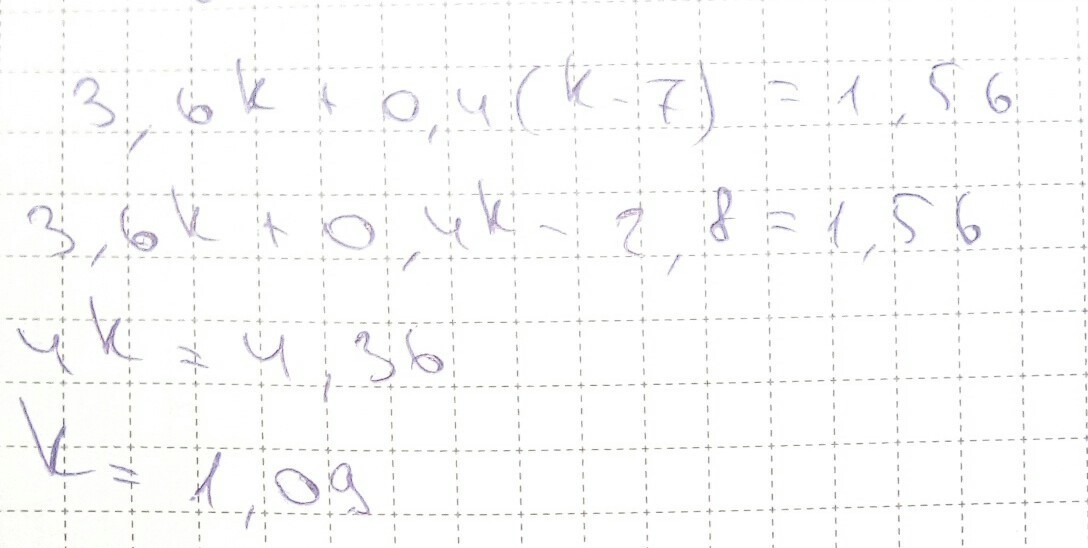 3,6k + 0,4(k - 7) = 1,56
3,6k + 0,4k - 2,8 = 1,56
4k = 4,36
k = 1,09